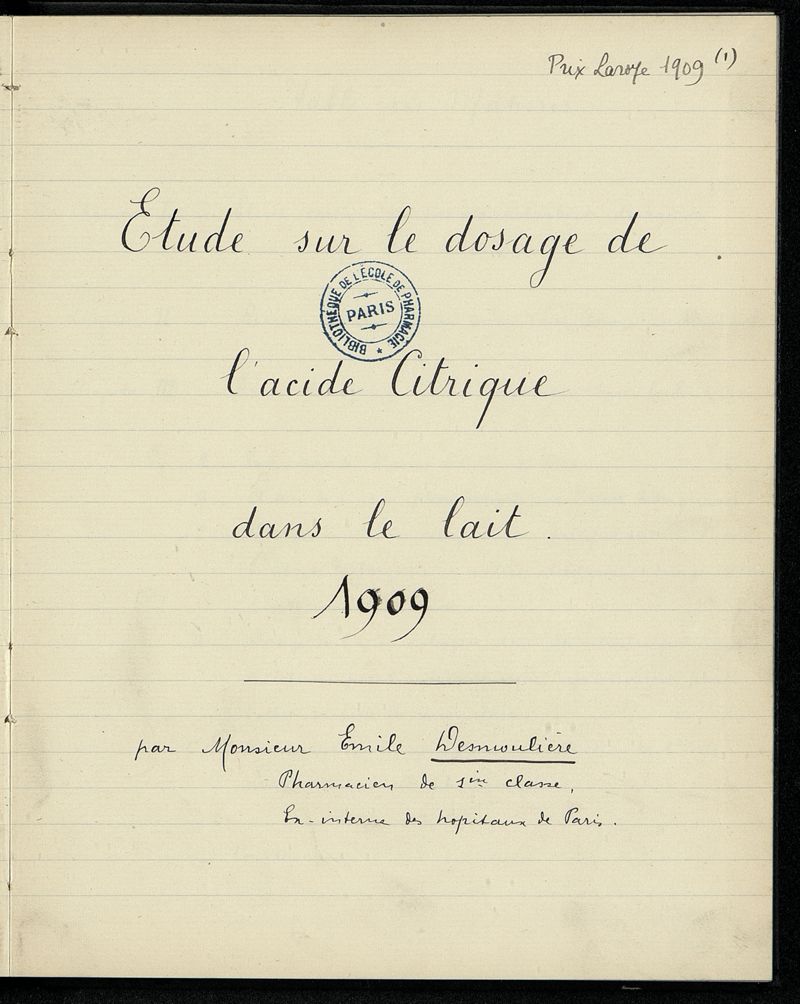 Prix Laroze 1909 (1)
Etude sur le dosage de
BIBLIOTHÈQUE DE L'ÉCOLE DE PHARMACIE *
PARIS
l'acide Citrique
dans le lait.
1909
par Monsieur Emile Desmoulière
Pharmacien de 1ère classe,
Ex-interne des hopitaux de Paris.